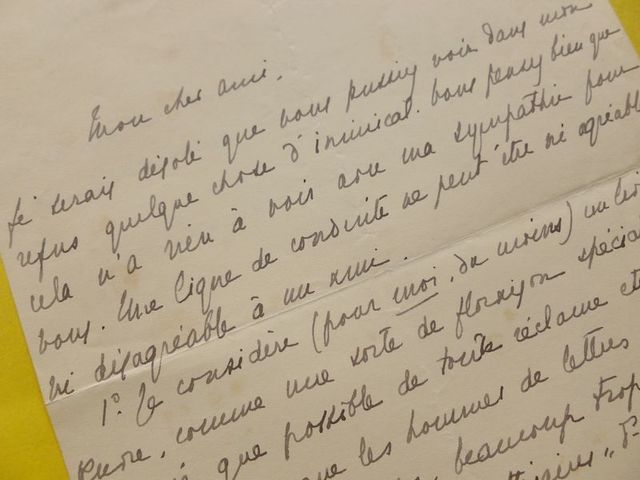 Mon cher ami.
Je serais désolé que vous pussiez voir dans mon
refus quelque chose d'inimical. Vous pensez bien que
cela n'a rien à voir avec ma sympathie pour
vous. Une ligne de conduite ne peut être ni agréable
ni désagréable à un ami.
1° Je considère (pour moi, du moins) un
comme une sorte de floraison
que possible de toute réclame et
que les hommes de lettres
beaucoup trop